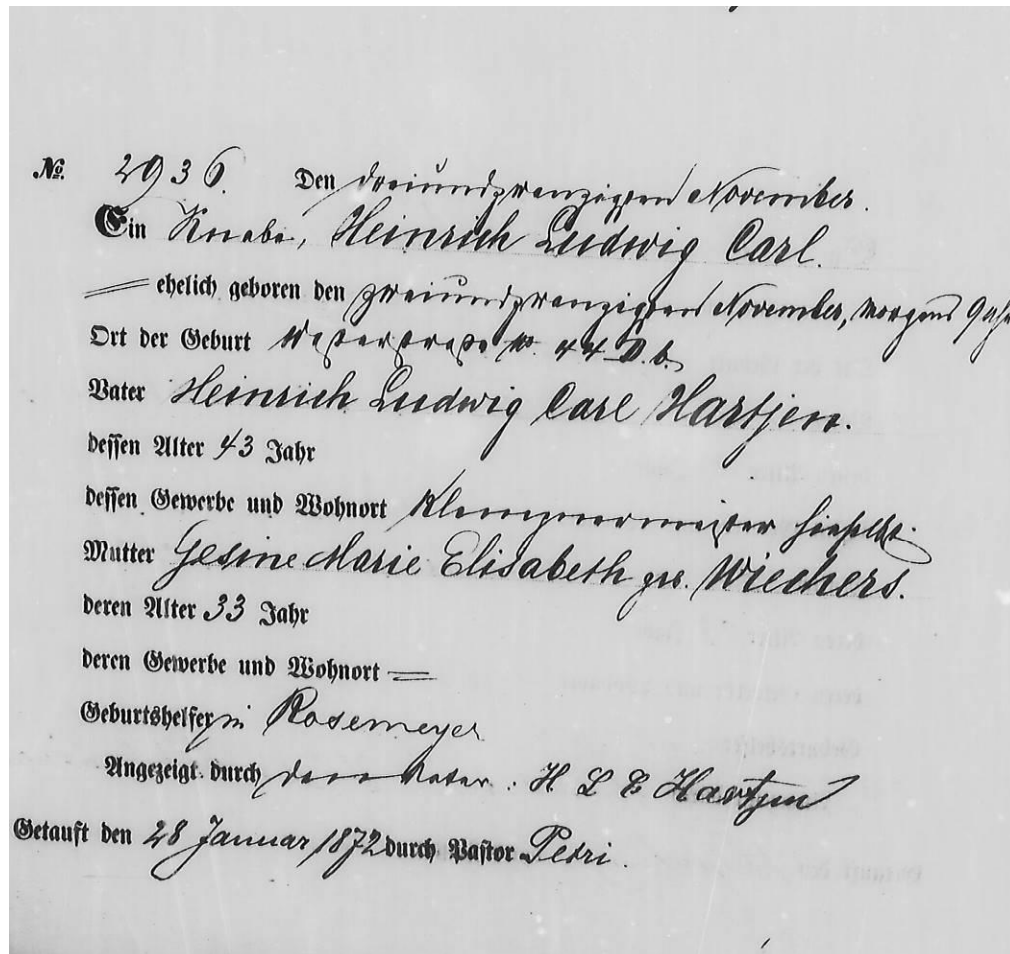 No. 2936. Den dreiundzwanzigsten November.
Ein Knabe, Heinrich Ludwig Carl.
= ehelich geboren den zweiundzwanzigsten November, morgens 9 Uh
Ort der Geburt Westerstraße No. 44
Vater Heinrich Ludwig Carl Hartjen.
dessen Alter 43 Jahr
dessen Gewerbe und Wohnort Klempnermeister hieselbst.
Mutter Gesine Marie Elisabeth geb. Wiechers.
deren Alter 33 Jahr
deren Gewerbe und Wohnort =
Geburtshelferin Rosemeyer
Angezeigt durch den Vater: H L C Hartjen
Getauft den 28 Januar 1872 durch Pastor Petri.